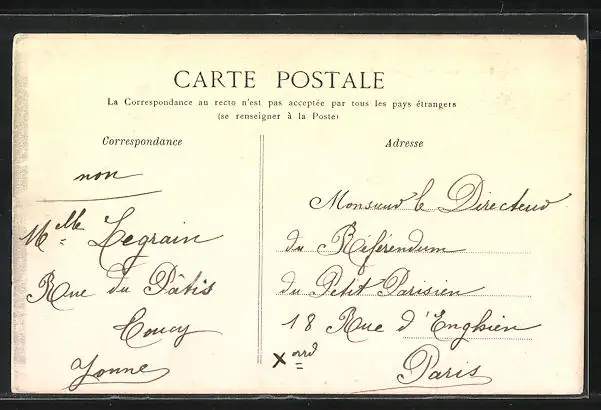 CARTE POSTALE
La Correspondance au recto n'est pas acceptée par tous les pays étrangers
(se renseigner à la Poste)
Correspondance
non
Melle Legrain
Rue du Pâtis
Toucy
Yonne
Adresse
Monsieur le Directeur
du Référendum
du Petit Parisien
18 Rue d'Enghien
Paris